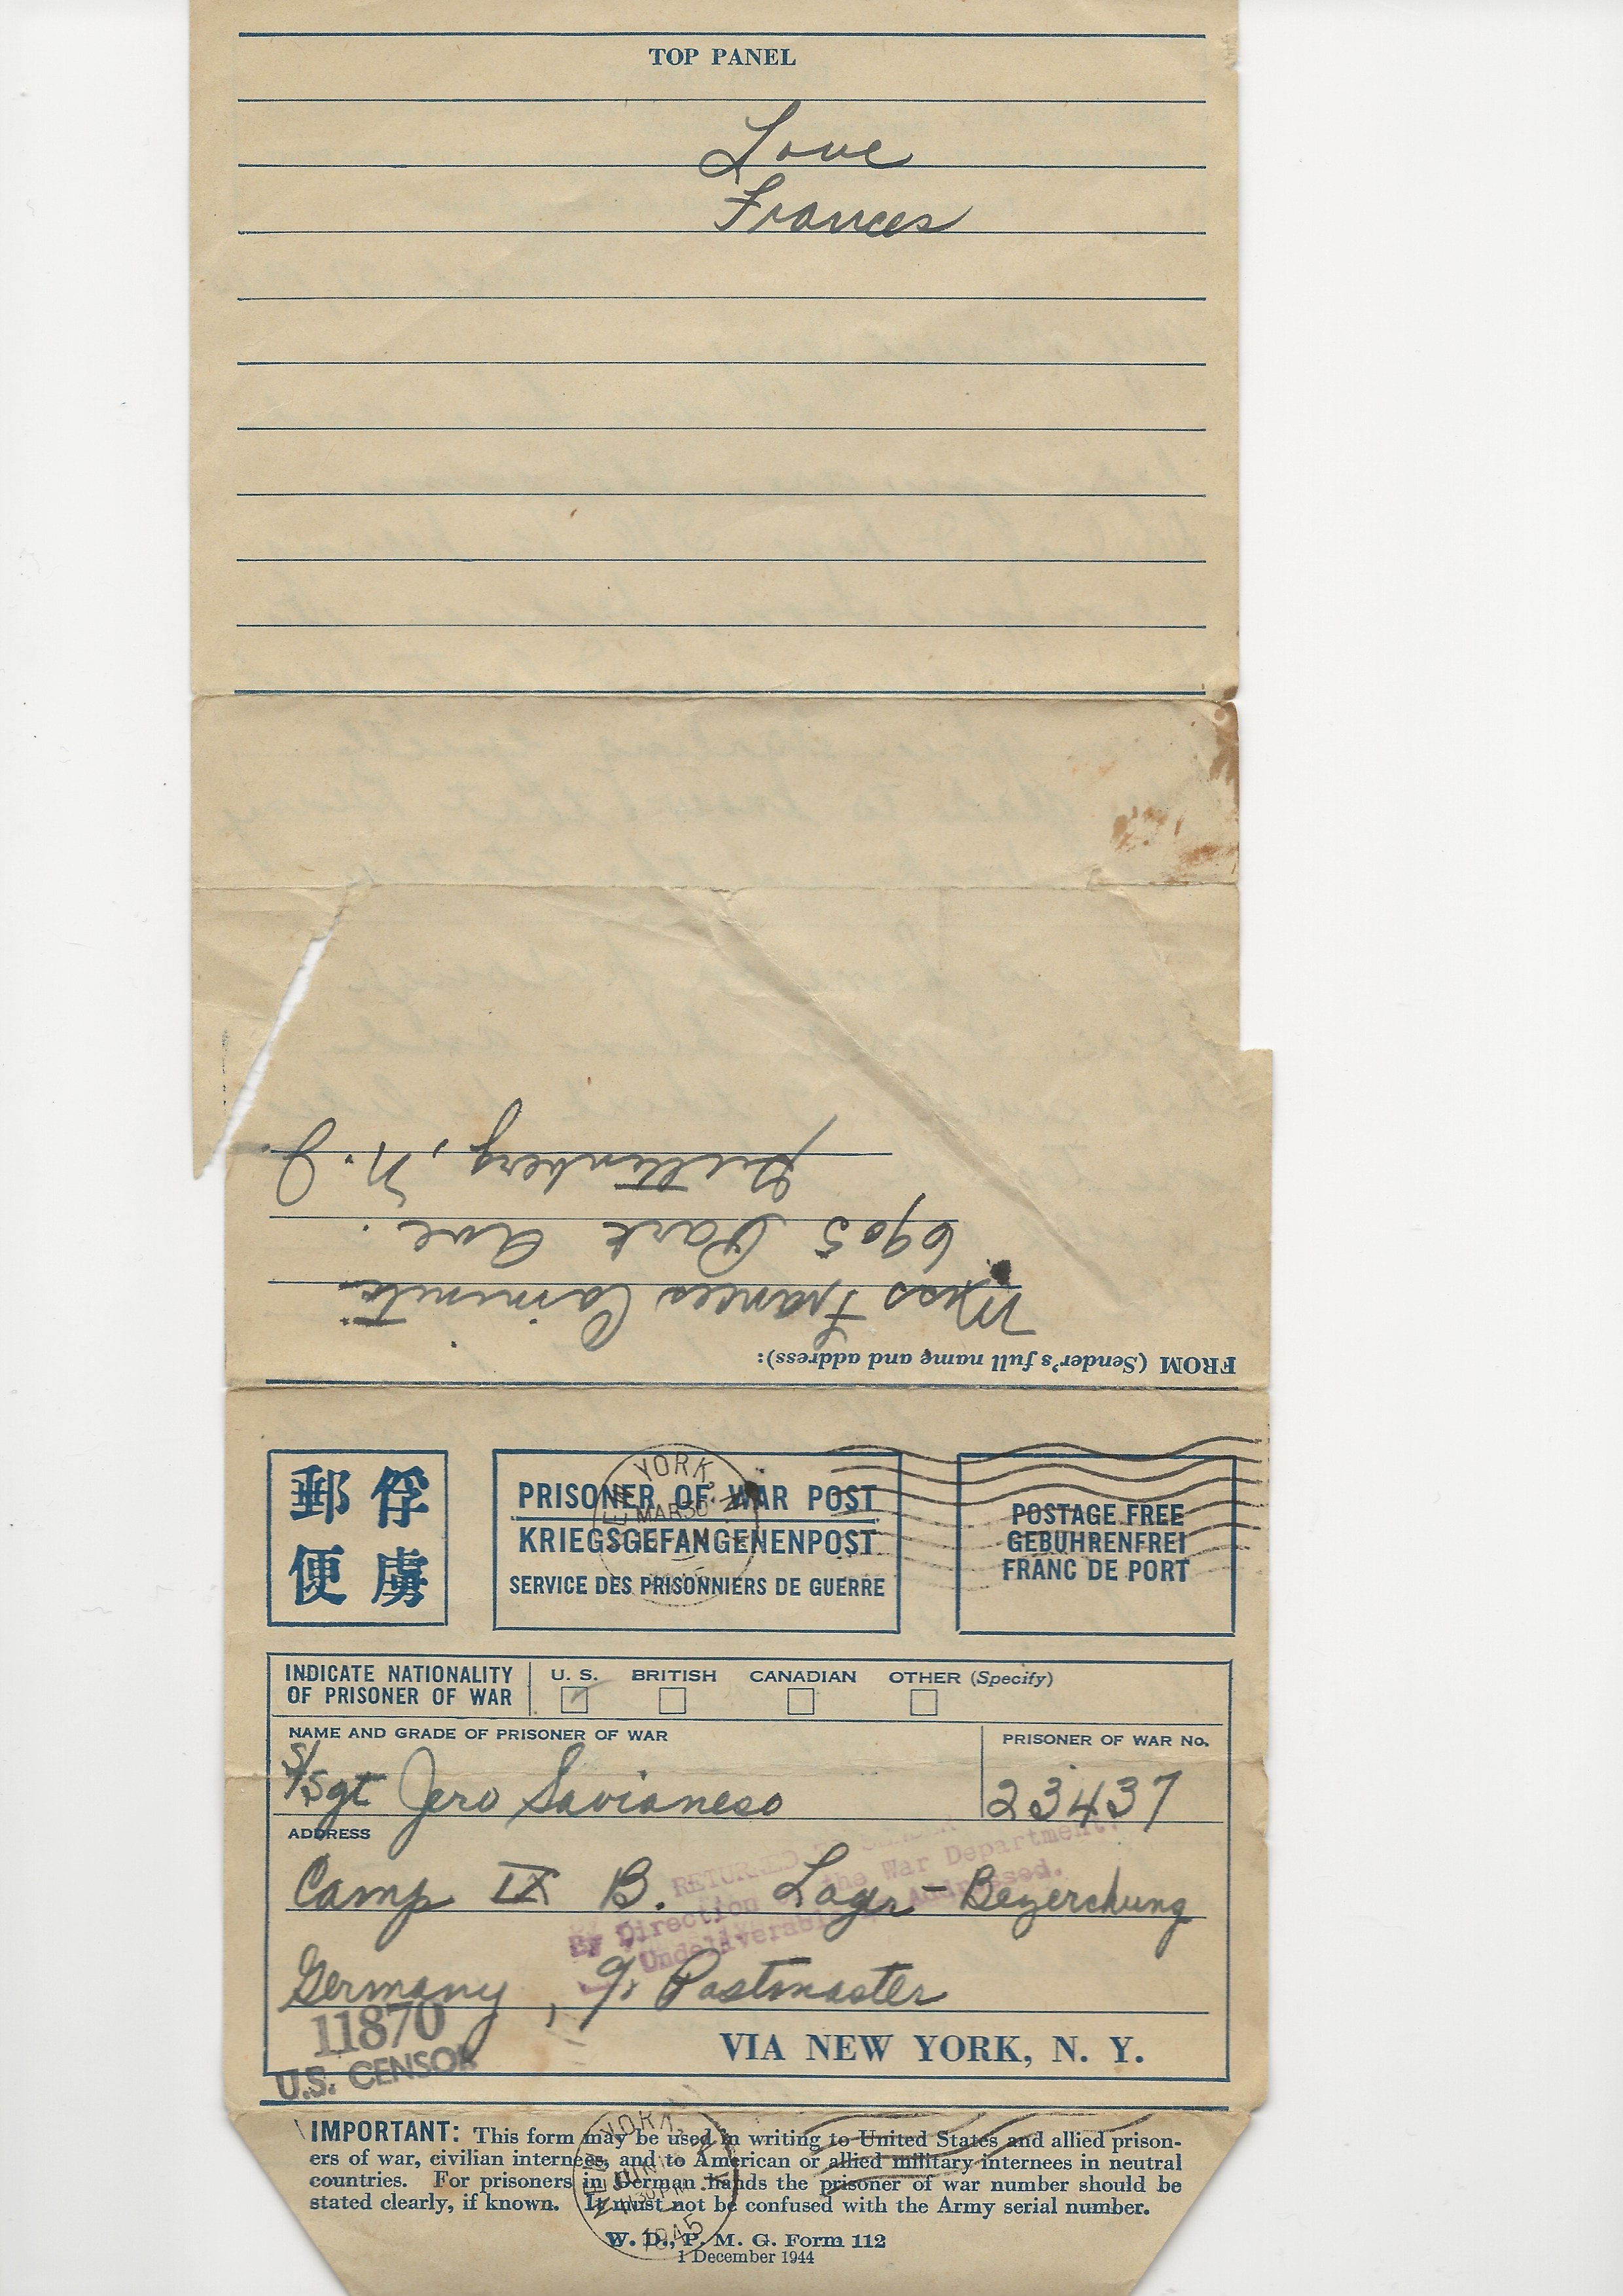 TOP PANEL
Love
Frances
FROM (Sender's full name and address):
Miss Frances
6905 Park Ave.
Guttenberg, N. J.
俘虜郵便
PRISONER OF WAR POST
KRIEGSGEFANGENENPOST
SERVICE DES PRISONNIERS DE GUERRE
POSTAGE FREE
GEBÜHRENFREI
FRANC DE PORT
YORK, N
MAR 30
INDICATE NATIONALITY
OF PRISONER OF WAR
U. S.
BRITISH
CANADIAN
OTHER (Specify)
NAME AND GRADE OF PRISONER OF WAR
S/Sgt Jero Savianeso
PRISONER OF WAR No.
23437
ADDRESS
Camp IX B. Lager-Bezerchung
Germany, % Postmaster
RETURNED TO SENDER
By Direction of the War Department.
Undeliverable as Addressed.
VIA NEW YORK, N. Y.
11870
U.S. CENSOR
IMPORTANT: This form may be used in writing to United States and allied prison-
ers of war, civilian internees, and to American or allied military internees in neutral
countries. For prisoners in German hands the prisoner of war number should be
stated clearly, if known. It must not be confused with the Army serial number.
W. D., P. M. G. Form 112
1 December 1944
YORK
1945